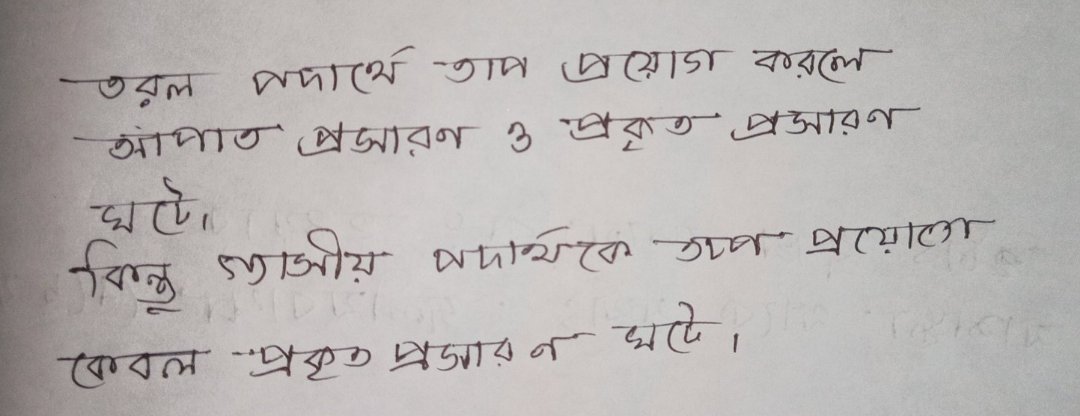 তরল পদার্থে তাপ প্রয়োগ করলে
আপাত প্রসারণ ও প্রকৃত প্রসারণ
ঘটে।
কিন্তু গ্যাসীয় পদার্থকে তাপ প্রয়োগে
কেবল প্রকৃত প্রসারণ ঘটে।